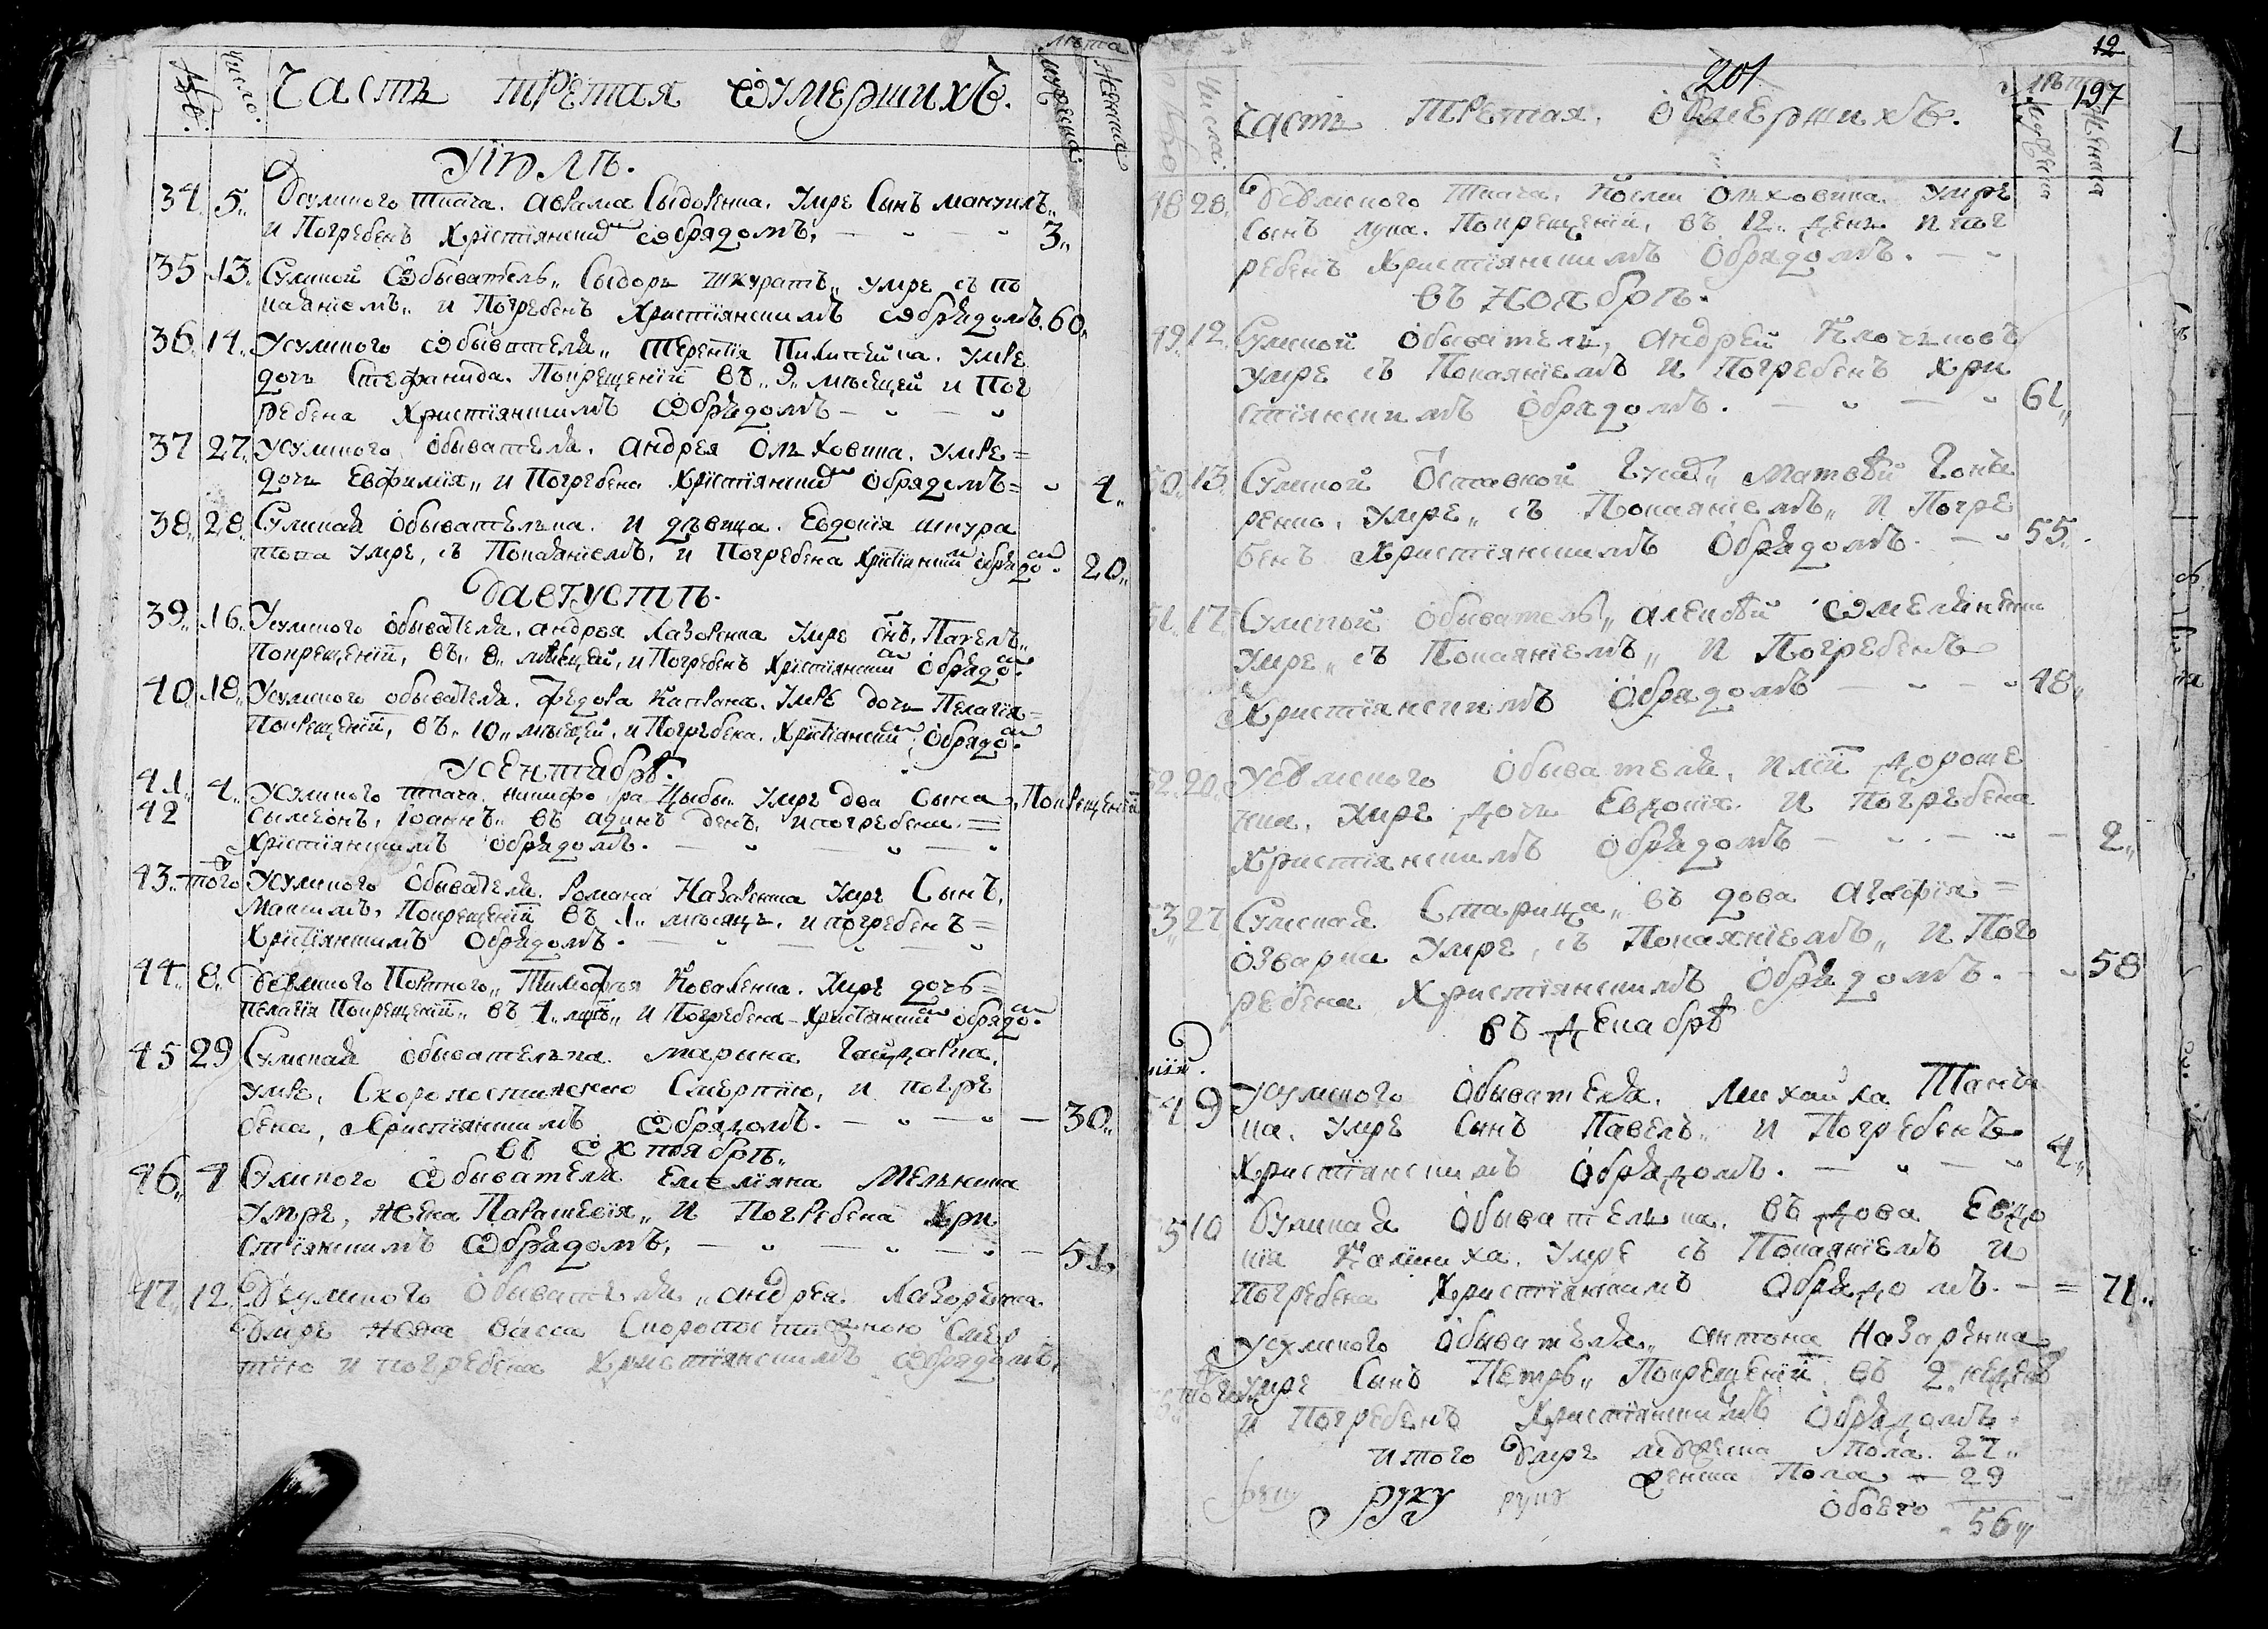 лѣта
№. число. Часть третая ѡумершихъ. мужеска женска
Уіюлѣ.
34 5. Усумского ткача. Аврама Сыдоренка. умре Сынъ Мануилъ.
и Погребенъ Христіянски Ѡбрядомъ. 3.
35 13. Сумской Ѡбыватель Сыдоръ шкуратъ умре съ по
каяніемъ и Погребенъ Христіянскимъ ѡбрядомъ. 60.
36 14. Усумского ѡбывателя Терентія умре
дочь Стефанида. Покрещеніи въ 9 мѣсецей и Пог
ребена Христіянскимъ Ѡбрядомъ
37 27. Усумского обывателя. андрея Ольховика. умре
дочь Евфимія и Погребена Христіянски Обрядомъ 4.
38. 28. Сумская обывателка. и дѣвица. Евдокія шкура
това умре, съ Покаяніемъ, и Погребена Христіянски обрядо. 20.
Уавгустѣ.
39. 16. Усумского обывателя. андрея Лазоренка умре снъ. Павелъ
Покрещеніи, въ 8 мѣсецей, и Погребенъ Христіянски обрядо.
40. 18. Усумского обывателя. Федора Каплана. умре дочь Пелагія
Покрещеніи, въ 10 мѣсецей, и Погребена. Христіянски обрядо.
Усентабрѣ.
41. 4. Усумского ткача. Никифора Цыбы умре два сына, Покрещеніи
42 Сымеонъ, Іоаннъ въ адинъ день. и погребени.
Христіянскимъ обрядомъ.
43. того Усумского Обывателя. Романа Назаренка умре Сынъ,
Максимъ, Покрещеніи въ 1 мѣсяцъ. и погребенъ
Христіянскимъ обрядомъ.
44. 8. Усумского Тимофея Коваленка. умре дочь
Пелагія Покрещеніи въ 4 мцѣ и Погребена Христіянски обрядо.
45 29 Сумская обывателка Марина
умре, Скоропостижною Смертію, и погре
бена, Христіянскимъ Ѡбрядомъ. 30.
въ ѡктябрѣ
46. 4 Сумского Ѡбывателя Емеліяна Мелника
умре, жена Параскевія и Погребена Хри
стіянскимъ Ѡбрядомъ, 51.
47. 12. Усумского Обывателя андрея Лазоренка
умре жена Васса Скоропостижною Смер
тію и погребена Христіянскимъ Ѡбрядомъ.
12
201 197
№ Числа. Часть третая. Оумершихъ. лѣта мужеска женска
48 28. Усумского Ткача. Козми Ольховика. умре
Сынъ Лука. Покрещеніи, въ 12 день и пог
ребенъ Христіянскимъ Обрядомъ.
въ Ноябрѣ.
49. 12. Сумской Обыватель, Андрей
умре съ Покаяніемъ и Погребенъ Хри
стіянскимъ Обрядомъ. 61.
50. 13. Сумской Оставной Матвѣй Гонча
ренко. умре съ Покаяніемъ и Погре
бенъ Христіянскимъ Обрядомъ. 55.
51. 17. Сумской Обыватель Алексѣй ѡмеляненко
умре съ Покаяніемъ и Погребенъ
Христіянскимъ Обрядомъ 48.
52. 20. Усумского Обывателя, Иліи Дороше
нка. умре дочь Евдокія. и Погребена
Христіянскимъ Обрядомъ 2.
53 27 Сумская Старица въдова Агафія
умре, съ Покаяніемъ и Пог
ребена Христіянскимъ Обрядомъ. 58
въ Декабрѣ
54 9 Усумского Обывателя. Михаила
ка. умре Сынъ Павелъ и Погребенъ
Христіянскимъ Обрядомъ. 4.
55 10 Сумская Обывателка. въдова Евдо
кія Калиниха. умре съ Покаяніемъ и
погребена Христіянскимъ Обрядомъ. 71.
Усумского Обывателя антона Назаренка
того умре Сынъ Петръ Покрещеніи въ 2 недели
и Погребенъ Христіянскимъ Обрядомъ.
итого умре мужеска пола. 27
женска Пола 29
руку руку обоего 56